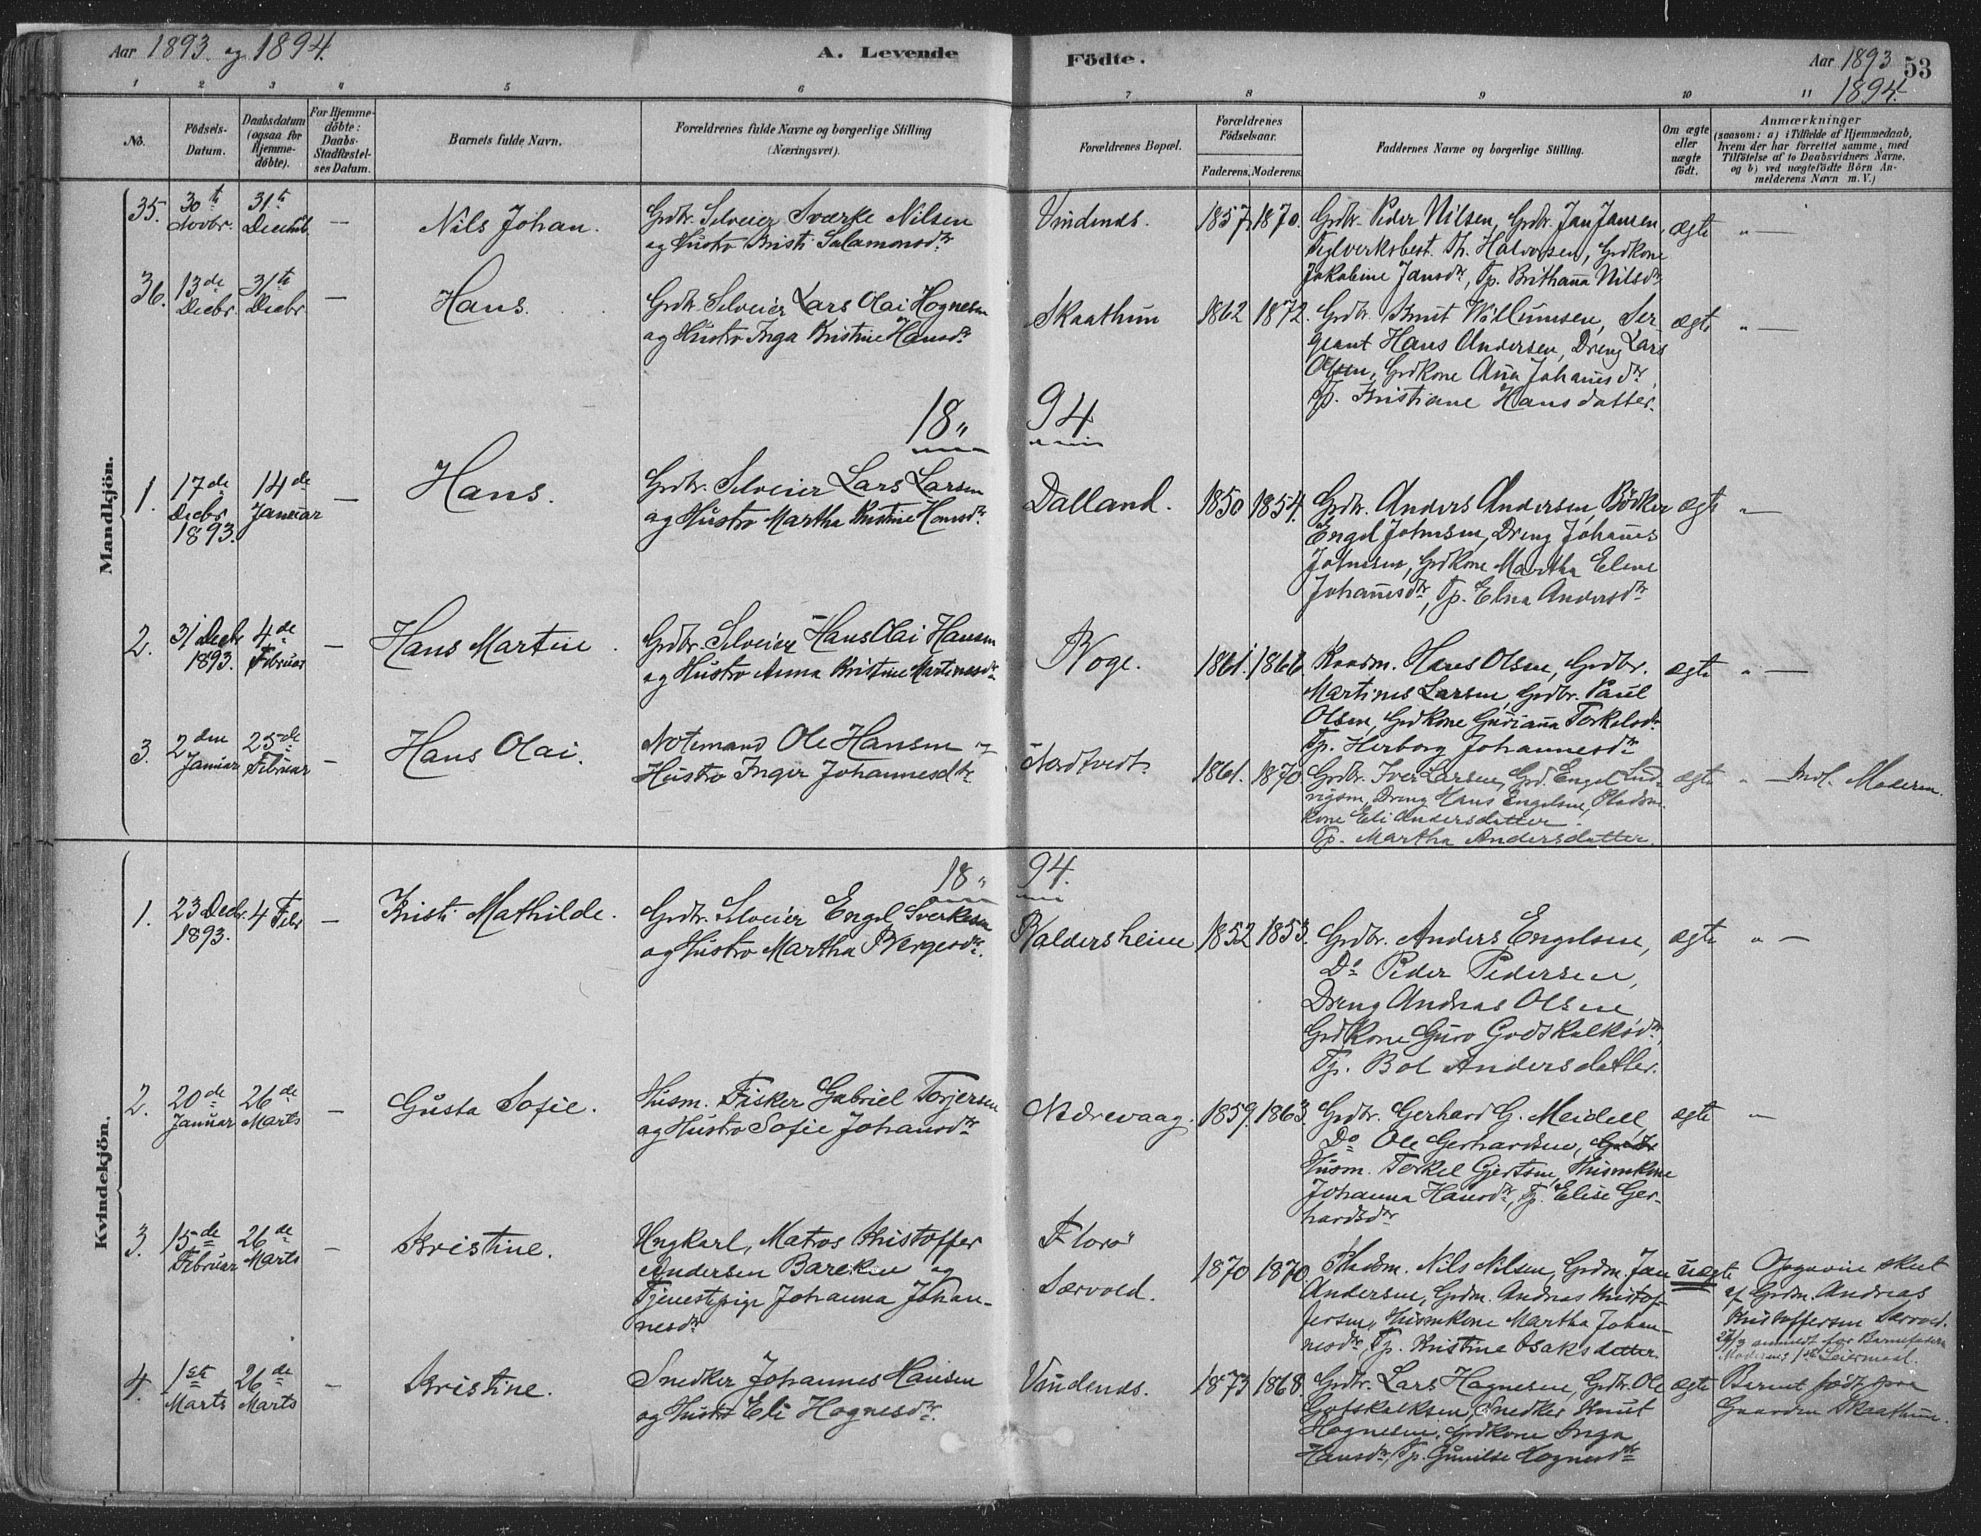 Aar 1893 og 1894.
A. Levende Födte.
Aar 1893 1894.
53
1 2 3 4 5 6 7 8 9 10 11
No.
Födsels-Datum.
Daabsdatum (ogsaa for Hjemme-döbte).
For Hjemme-döbte: Daabs-Stadfæstel-ses Datum.
Barnets fulde Navn.
Forældrenes fulde Navne og borgerlige Stilling (Næringsvei).
Forældrenes Bopæl.
Forældrenes Födselsaar.
Faderens. Moderens.
Faddernes Navne og borgerlige Stilling.
Om ægte eller uægte födt.
Anmærkninger
(saasom: a) i Tilfælde af Hjemmedaab,
hvem der har forrettet samme, med
Tilföielse af to Daabsvidners Navne,
og b) ved uægtefödte Börn An-
melderens Navn m. V.)
Mandkjön.
35. 30te Novbr. 31te Decbr — Nils Johan.
Grdbr. Selveier Sværke Nilsen
og Hustro Kristi Salamonsdtr
Vindenes. 1857 1870.
Grdbr. Peder Nilsen, Grdbr. Jan Jansen,
Teglverksbest. Th. Halvorsen, Grdkone
Jakobine Jansdtr, Tp. Brithanna Nilsdtr
ægte " —
36. 13de Decbr. 31te Decbr — Hans.
Grdbr. Selveier Lars Olai Hognesen
og Hustro Inga Kristine Hansdtr
Skaathun 1862 1872.
Grdbr. Knut Willumsen, Ser-
geant Hans Andersen, Dreng Lars
Olsen, Grdkone Anna Johannesdtr,
Tp. Kristiane Hansdatter.
ægte " —
18 " 94
1. 17de Decbr 1893. 14de Januar — Hans.
Grdbr. Selveier Lars Larsen
og Hustro Martha Kristine Hansdtr.
Dalland. 1850 1854.
Grdbr. Anders Andersen, Bödker
Engel Johnsen, Dreng Johannes
Johnsen, Grdkone Martha Eline
Johannesdtr, Tp. Elna Andersdtr
ægte " —
2. 31 Decbr 1893. 4de Februar — Hans Martin.
Grdbr. Selveier Hans Olai Hansen
og Hustro Anna Kristine Martinesdtr
Koge. 1861. 1866.
Kaarm. Hans Olsen, Grdbr.
Martines Larsen, Grdbr. Paul
Olsen, Grdkone Guriana Torkelsdtr
Tp. Herborg Johannesdtr
ægte " —
3. 2den Januar 25de Februar — Hans Olai.
Notemand Ole Hansen og
Hustro Inger Johannesdtr.
Nordtvedt. 1861. 1870.
Grdbr. Iver Larsen, Grd. Engel Lud-
vigsen, Dreng Hans Engelsen, Pladsm-
kone Eli Andersdatter.
Tp. Martha Andersdatter.
ægte " — Indl. Moderen.
Kvindekjön.
18 " 94.
1. 23 Decbr. 1893. 4 Febr — Kristi Mathilde.
Grdbr. Selveier Engel Sverkesen
og Hustro Martha Børgesdtr.
Kaldersheim 1852 1853.
Grdbr. Anders Engelsen,
Do Peder Pedersen,
Dreng Andreas Olsen
Grdkone Guro Godskalksdtr,
Tp. Bol Andersdatter.
ægte " —
2. 20de Januar 26de Marts — Gusta Sofie.
Husm. Fisker Gabriel Torjersen
og Hustro Sofie Johansdtr
Nædrevaag. 1859. 1863.
Grdbr. Gerhard G. Meidell,
Do Ole Gerhardsen,
Husm. Torkel Gjertsen, Husmkone
Johanna Hansdtr, Tp. Elise Ger-
hardsdtr
ægte " —
3. 15de Februar 26de Marts — Kristine.
Ungkarl, Matros Kristoffer
Andersen Barekue og
Tjenestepige Johanna Johan-
nesdtr
Florö
Særvold. 1870 1870.
Pladsm. Nils Nilsen, Grdm. Jan
Andersen, Grdm. Andreas Kristof-
fersen, Husmkone Martha Johan-
nesdtr, Tp. Kristine Osaksdatter.
uægte
Opgaven skeet
af Grdm. Andreas
Kristoffersen Særvold.
27/3 anmeldt for Barnefaderen
Moderens 1ste Leiermaal.
4. 1ste Marts 26de Marts — Kristine.
Snedker Johannes Hansen
og Hustro Eli Hognesdtr.
Vindenes. 1873 1868.
Grdbr. Lars Hognesen, Grdbr. Ole
Gotskalksen, Snedker Knut
Hognesen, Grdkone Inga
Hansdtr, Tp. Gunilse Hognesdtr
ægte
Barnet födt paa
Gaarden Skaathun.